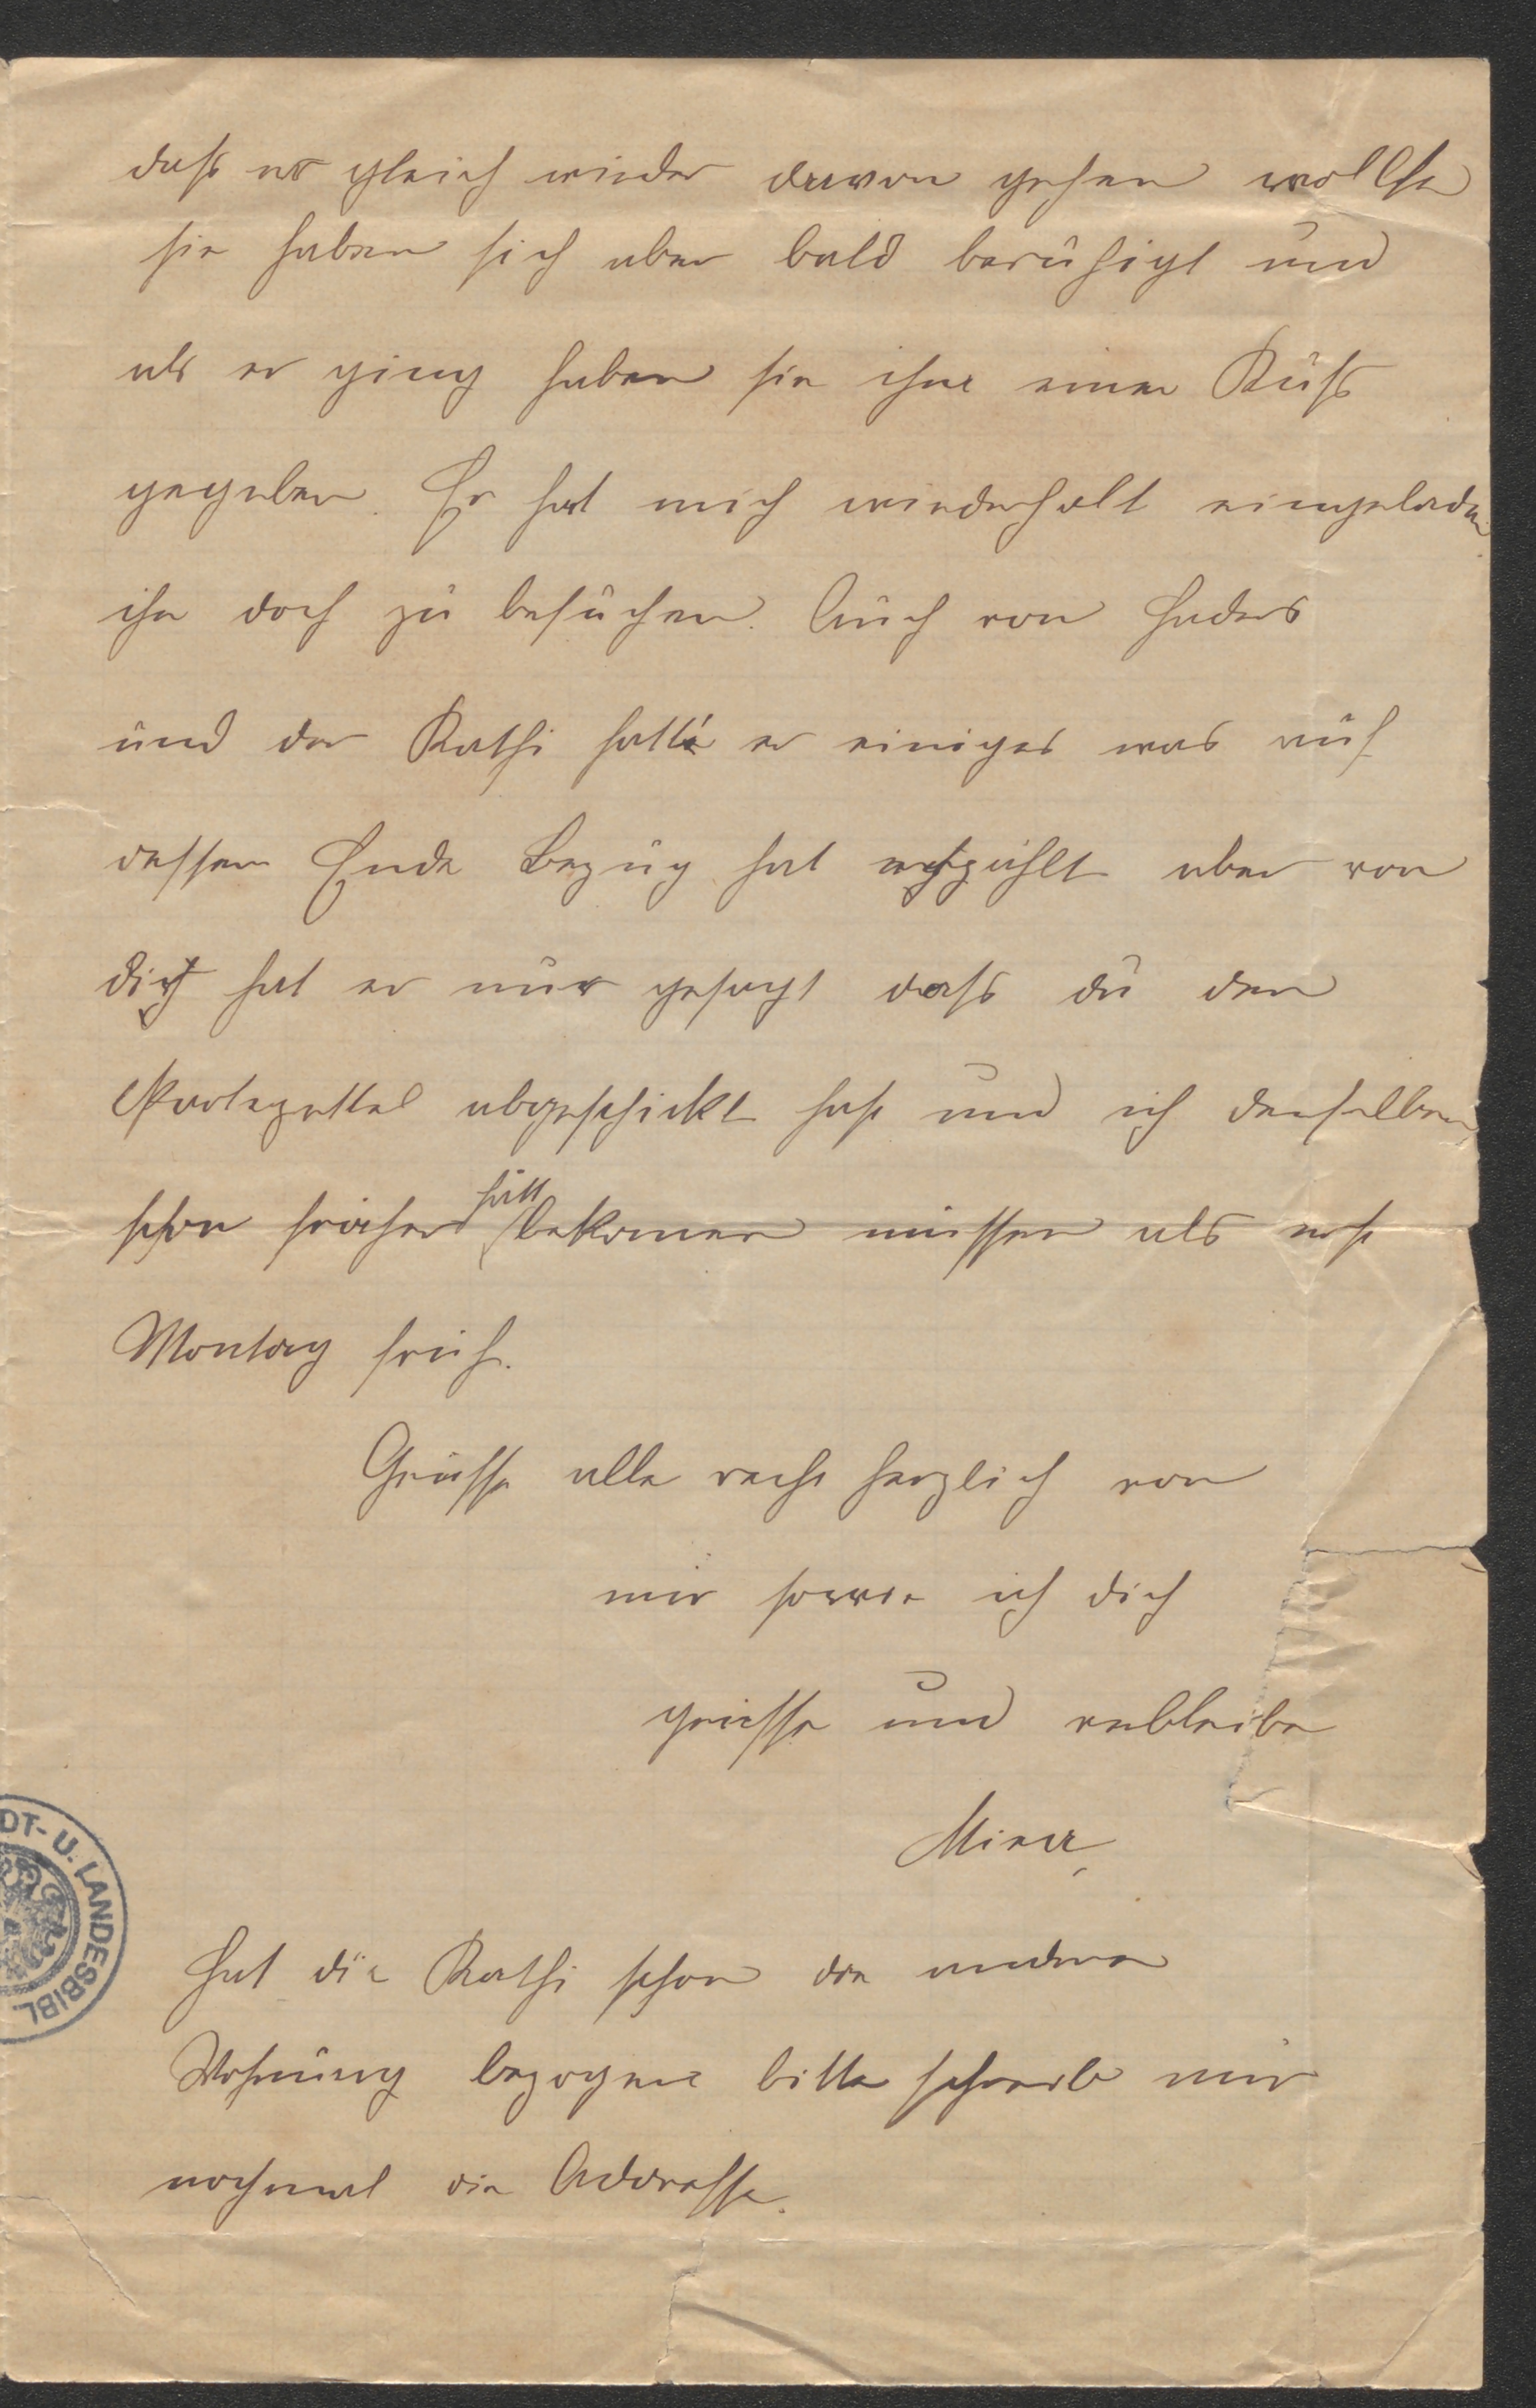 dass er gleich wieder davon gehen wollte
sie haben sich aber bald beruhigt und
als er ging haben sie ihm einen Kuss
gegeben. Er hat mich wiederholt eingeladen
ihn doch zu besuchen. Auch von Eders
und der Kathi hatte er einiges was auf
dessen Ende Bezug hat erzählt aber von
dir hat er nur gesagt dass du den
abgeschickt hast und ich denselben
schon früher hätt bekomen müssen als erst
Montag früh.
Grüsse alle recht herzlich von
mir sowie ich dich
grüsse und verbleibe
Mina
Hat die Kathi schon die andere
Wohnung bezogen bitte schreib mir
nochmal die Addresse.
DT- U. LANDESBIBL.